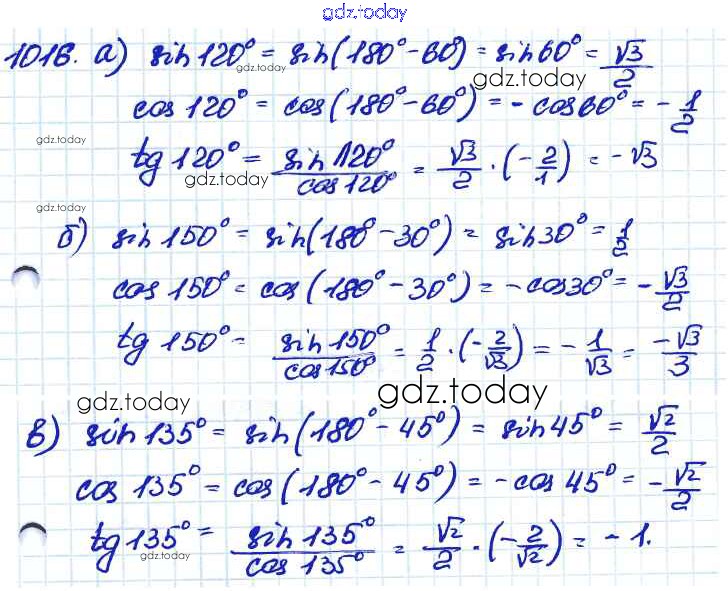 gdz.today
1016. а) sin 120° = sin(180° - 60°) = sin 60° = √3/2
gdz.today
gdz.today
cos 120° = cos(180° - 60°) = - cos 60° = - 1/2
gdz.today
tg 120° = sin 120°/cos 120° = √3/2 · (- 2/1) = - √3
gdz.today
gdz.today
б) sin 150° = sin(180° - 30°) = sin 30° = 1/2
cos 150° = cos(180° - 30°) = - cos 30° = - √3/2
tg 150° = sin 150°/cos 150° = 1/2 · (- 2/√3) = - 1/√3 = -√3/3
gdz.today
gdz.today
в) sin 135° = sin(180° - 45°) = sin 45° = √2/2
cos 135° = cos(180° - 45°) = - cos 45° = - √2/2
tg 135° = sin 135°/cos 135° = √2/2 · (- 2/√2) = - 1.
gdz.today